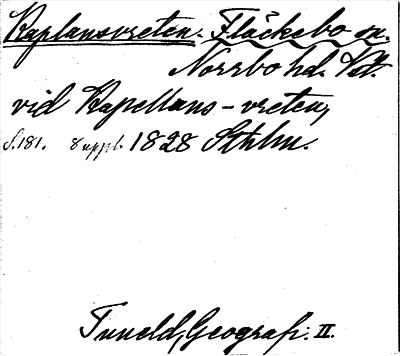 Kaplansvreten. Fläckebo sn.
Norrbo hd. Vstl.
vid Kapellans-vreten,
S. 181. 8 uppl. 1828 Sthlm.
Tuneld, Geografi. II.